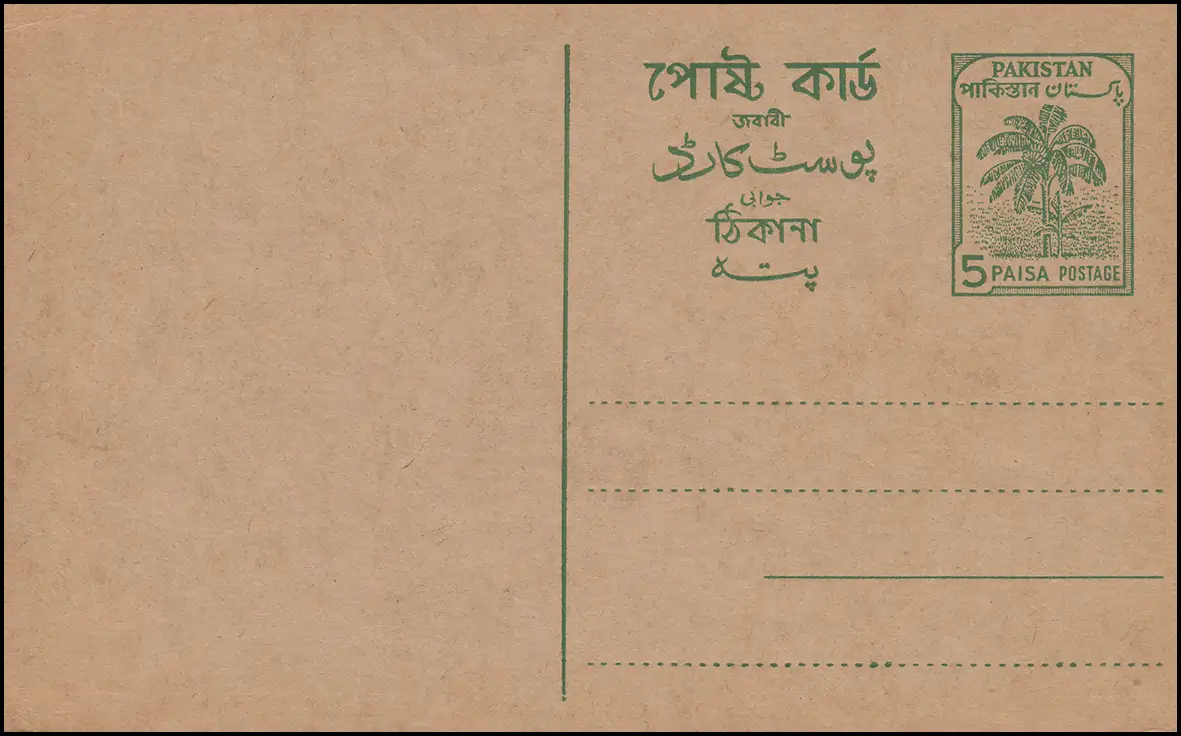 পোষ্ট কার্ড
জবাবী
پوسٹ کارڈ
جوابی
ঠিকানা
پتہ
PAKISTAN
পাকিস্তান پاکستان
5 PAISA POSTAGE